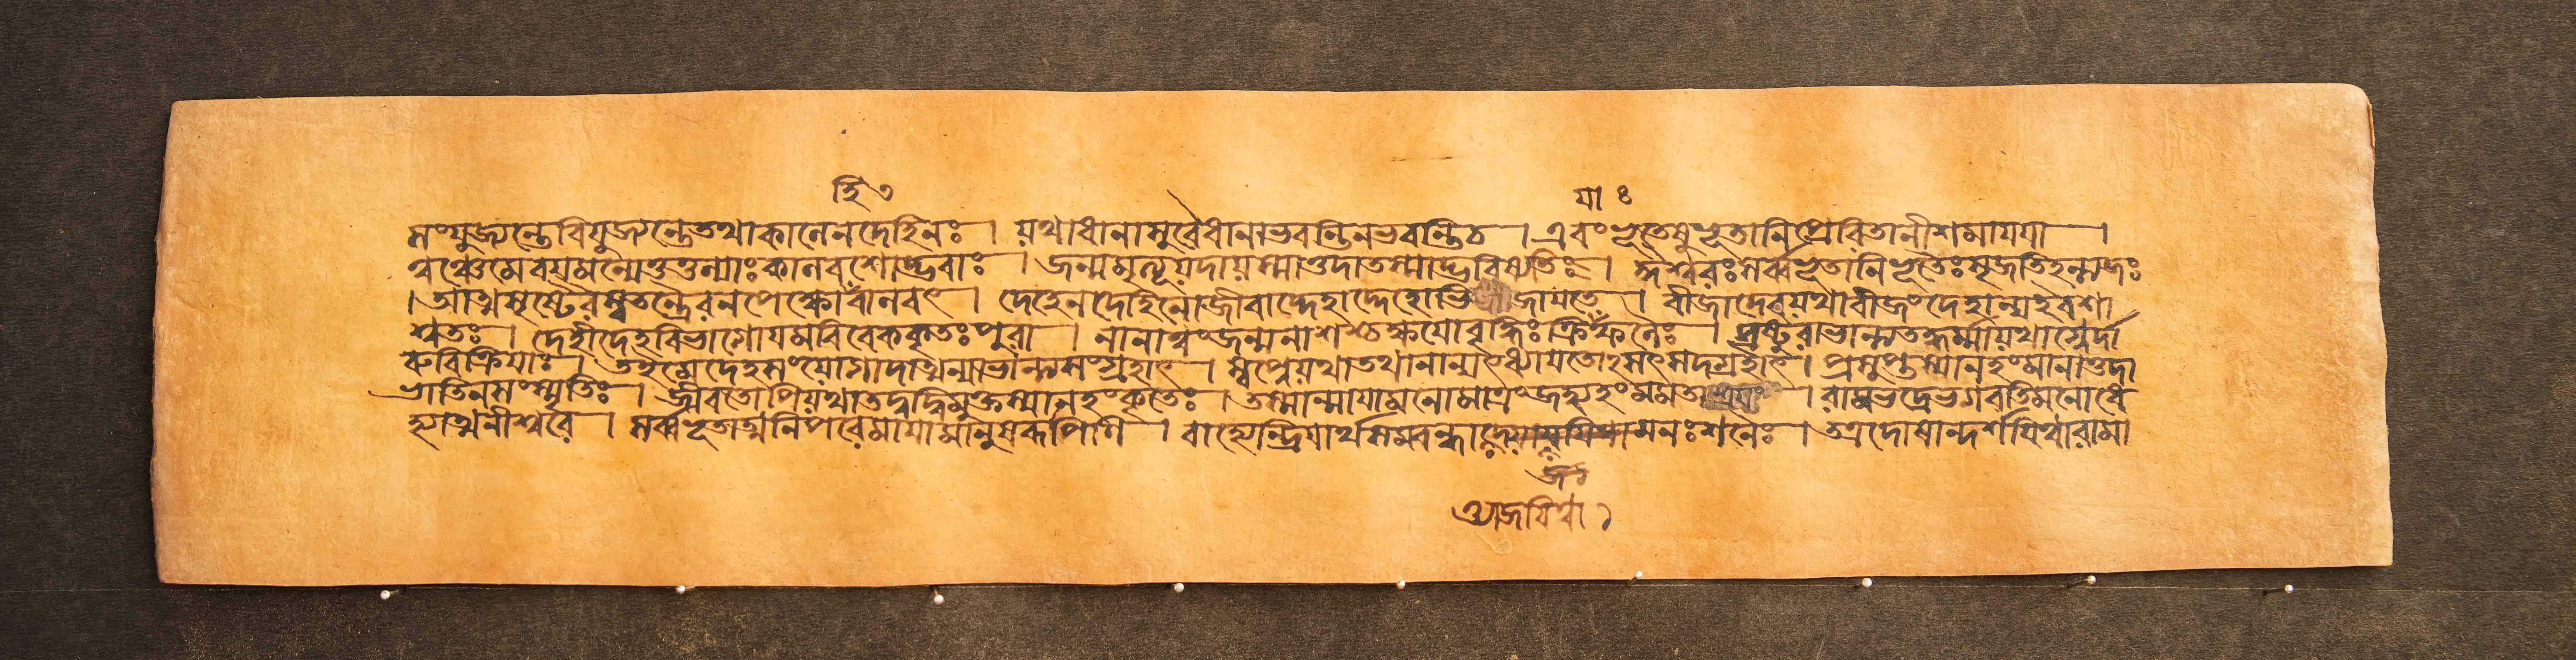 হি ৩ যাঃ
সংযুজ্যন্তেবিযুজ্যন্তেতথাকালেনদেহিনঃ । যথাধানাসুবৈধানাভবন্তিনভবন্তিচ । এবংভূতেষুভূতানিপ্রেরিতানীশমায়য়া ।
ত্বঞ্চেমেবয়মন্যেতুতুল্যাঃকালবশোদ্ভবাঃ । জন্মমৃত্যূযদাযস্মাত্তদাতস্মাদ্ভবিষ্যতিঃ । ঈশ্বরঃসর্ব্বভূতানিভূতৈঃসৃজতিহন্ত্যজঃ
। আত্মসৃষ্টৈরস্বতন্ত্রৈরনপেক্ষোবালবৎ । দেহেনদেহিনোজীবাদ্দেহাদ্দেহোভিজায়তে । বীজাদেবযথাবীজংদেহান্যইবশা
শ্বতঃ । দেহীদেহবিভাগোয়মবিবেককৃতঃপুরা । নানাত্বংজন্মনাশশ্চক্ষয়োবৃদ্ধিঃক্রিয়াফলৈঃ । দ্রষ্টুরাভান্ত্যতদ্ধর্ম্মাযথাগ্নের্দা
রুবিক্রিয়াঃ । তইমেদেহসংযোগাদাত্মন্যাভান্ত্যসংগ্রহাৎ । স্বপ্নেযথাতথাচান্যৎধ্যায়তোঽসৎসদগ্রহাৎ । প্রসুপ্তস্যানহংমানাত্তদা
ভাতিনসংসৃতিঃ । জীবতোপিযথাতদ্বদ্বিমুক্তস্যানহংকৃতেঃ । তস্মান্মায়ামনোমাত্রংজহ্যহংমমতা । রামভদ্রেভগবতিমনোধে
হ্যাত্মনীশ্বরে । সর্ব্বভূতাত্মনিপরেমায়ামানুষরূপিণি । বাহ্যেন্দ্রিয়ার্থসম্বন্ধা মনঃশনৈঃ । তত্রদোষান্দর্শয়িত্বারামা
ত্যাজয়িত্বা ১